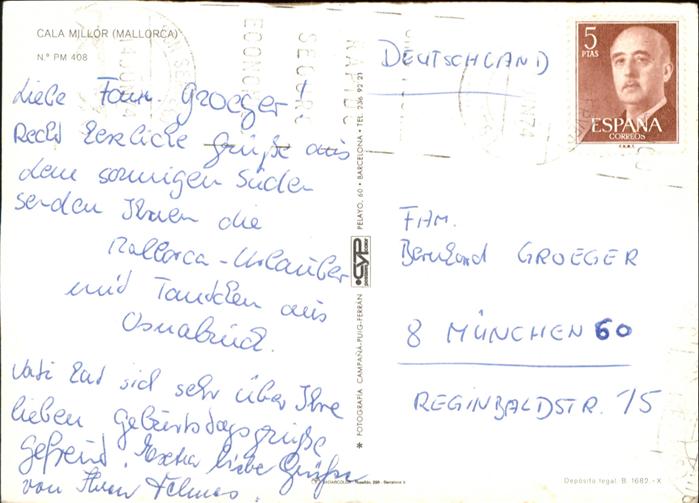 CALA MILLOR (MALLORCA)
N.º PM 408
Liebe Fam. Groeger!
Recht herzliche Grüße aus
dem sonnigen Süden
senden Ihnen die
Mallorca-Urlauber
und Tantchen aus
Osnabrück.
Vati hat sich sehr über Ihre
lieben Geburtstagsgrüße
gefreut. Extra liebe Grüße
von Ihren
DEUTSCHLAND
5
PTAS
ESPAÑA
CORREOS
FAM.
Bernhard GROEGER
8 MÜNCHEN 60
REGINBALDSTR. 15
* FOTOGRAFIA CAMPAÑÁ-PUIG-FERRÁN
CYP
PELAYO, 60 • BARCELONA • TEL. 236 92 21
Depósito legal B. 1682.-X